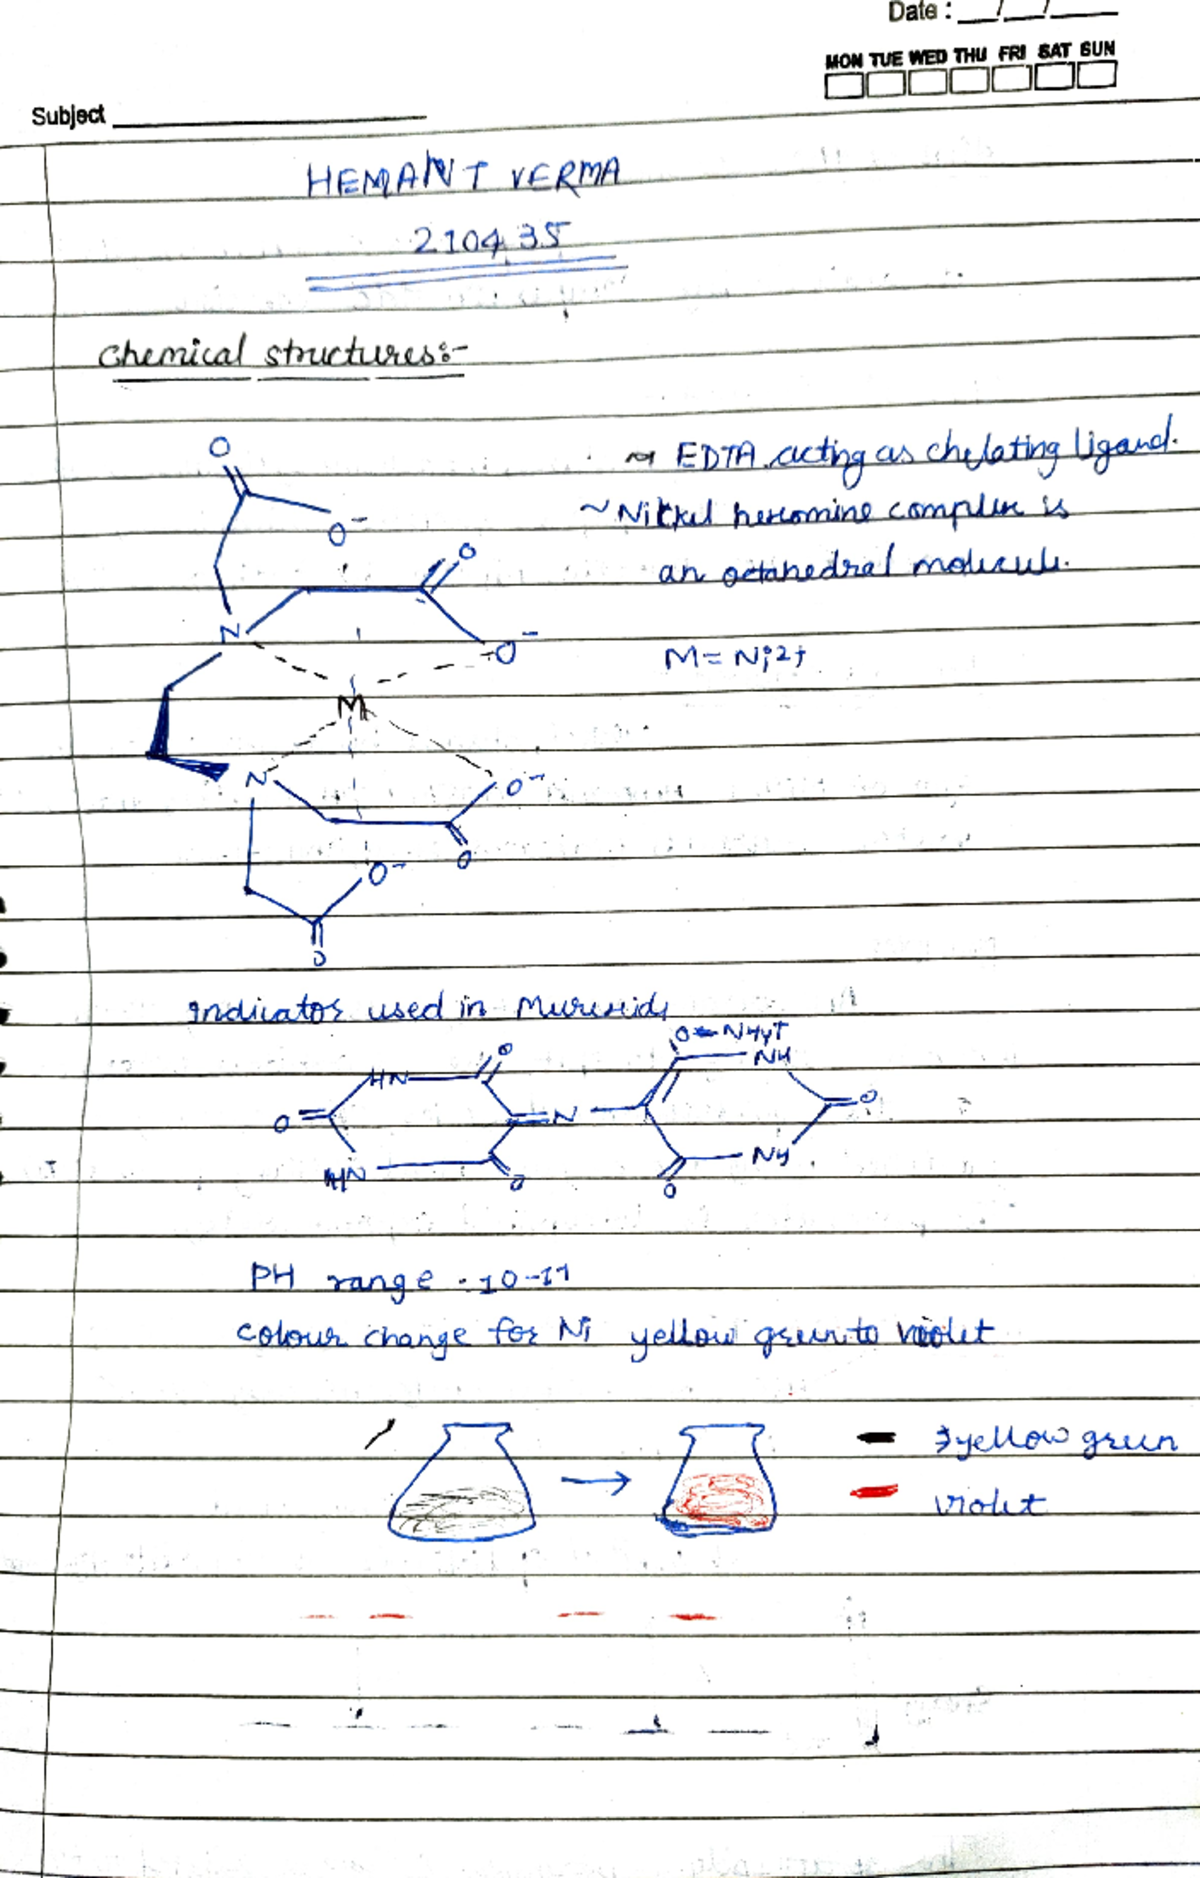 Date : __/__/____
MON TUE WED THU FRI SAT SUN
Subject
HEMANT VERMA
210435
Chemical structures:-
~ EDTA acting as chelating ligand.
~ Nickel hexamine complex is
an octahedral molecule.
O
O⁻
O
N
O⁻
M = Ni2+
M
N
O⁻
O
O⁻
O
Indicator used in Murexide
O NH4+
O
NH
HN
O
N
O
HN
O
NH
O
PH range . 10-11
colour change for Ni yellow green to violet
yellow green
violet